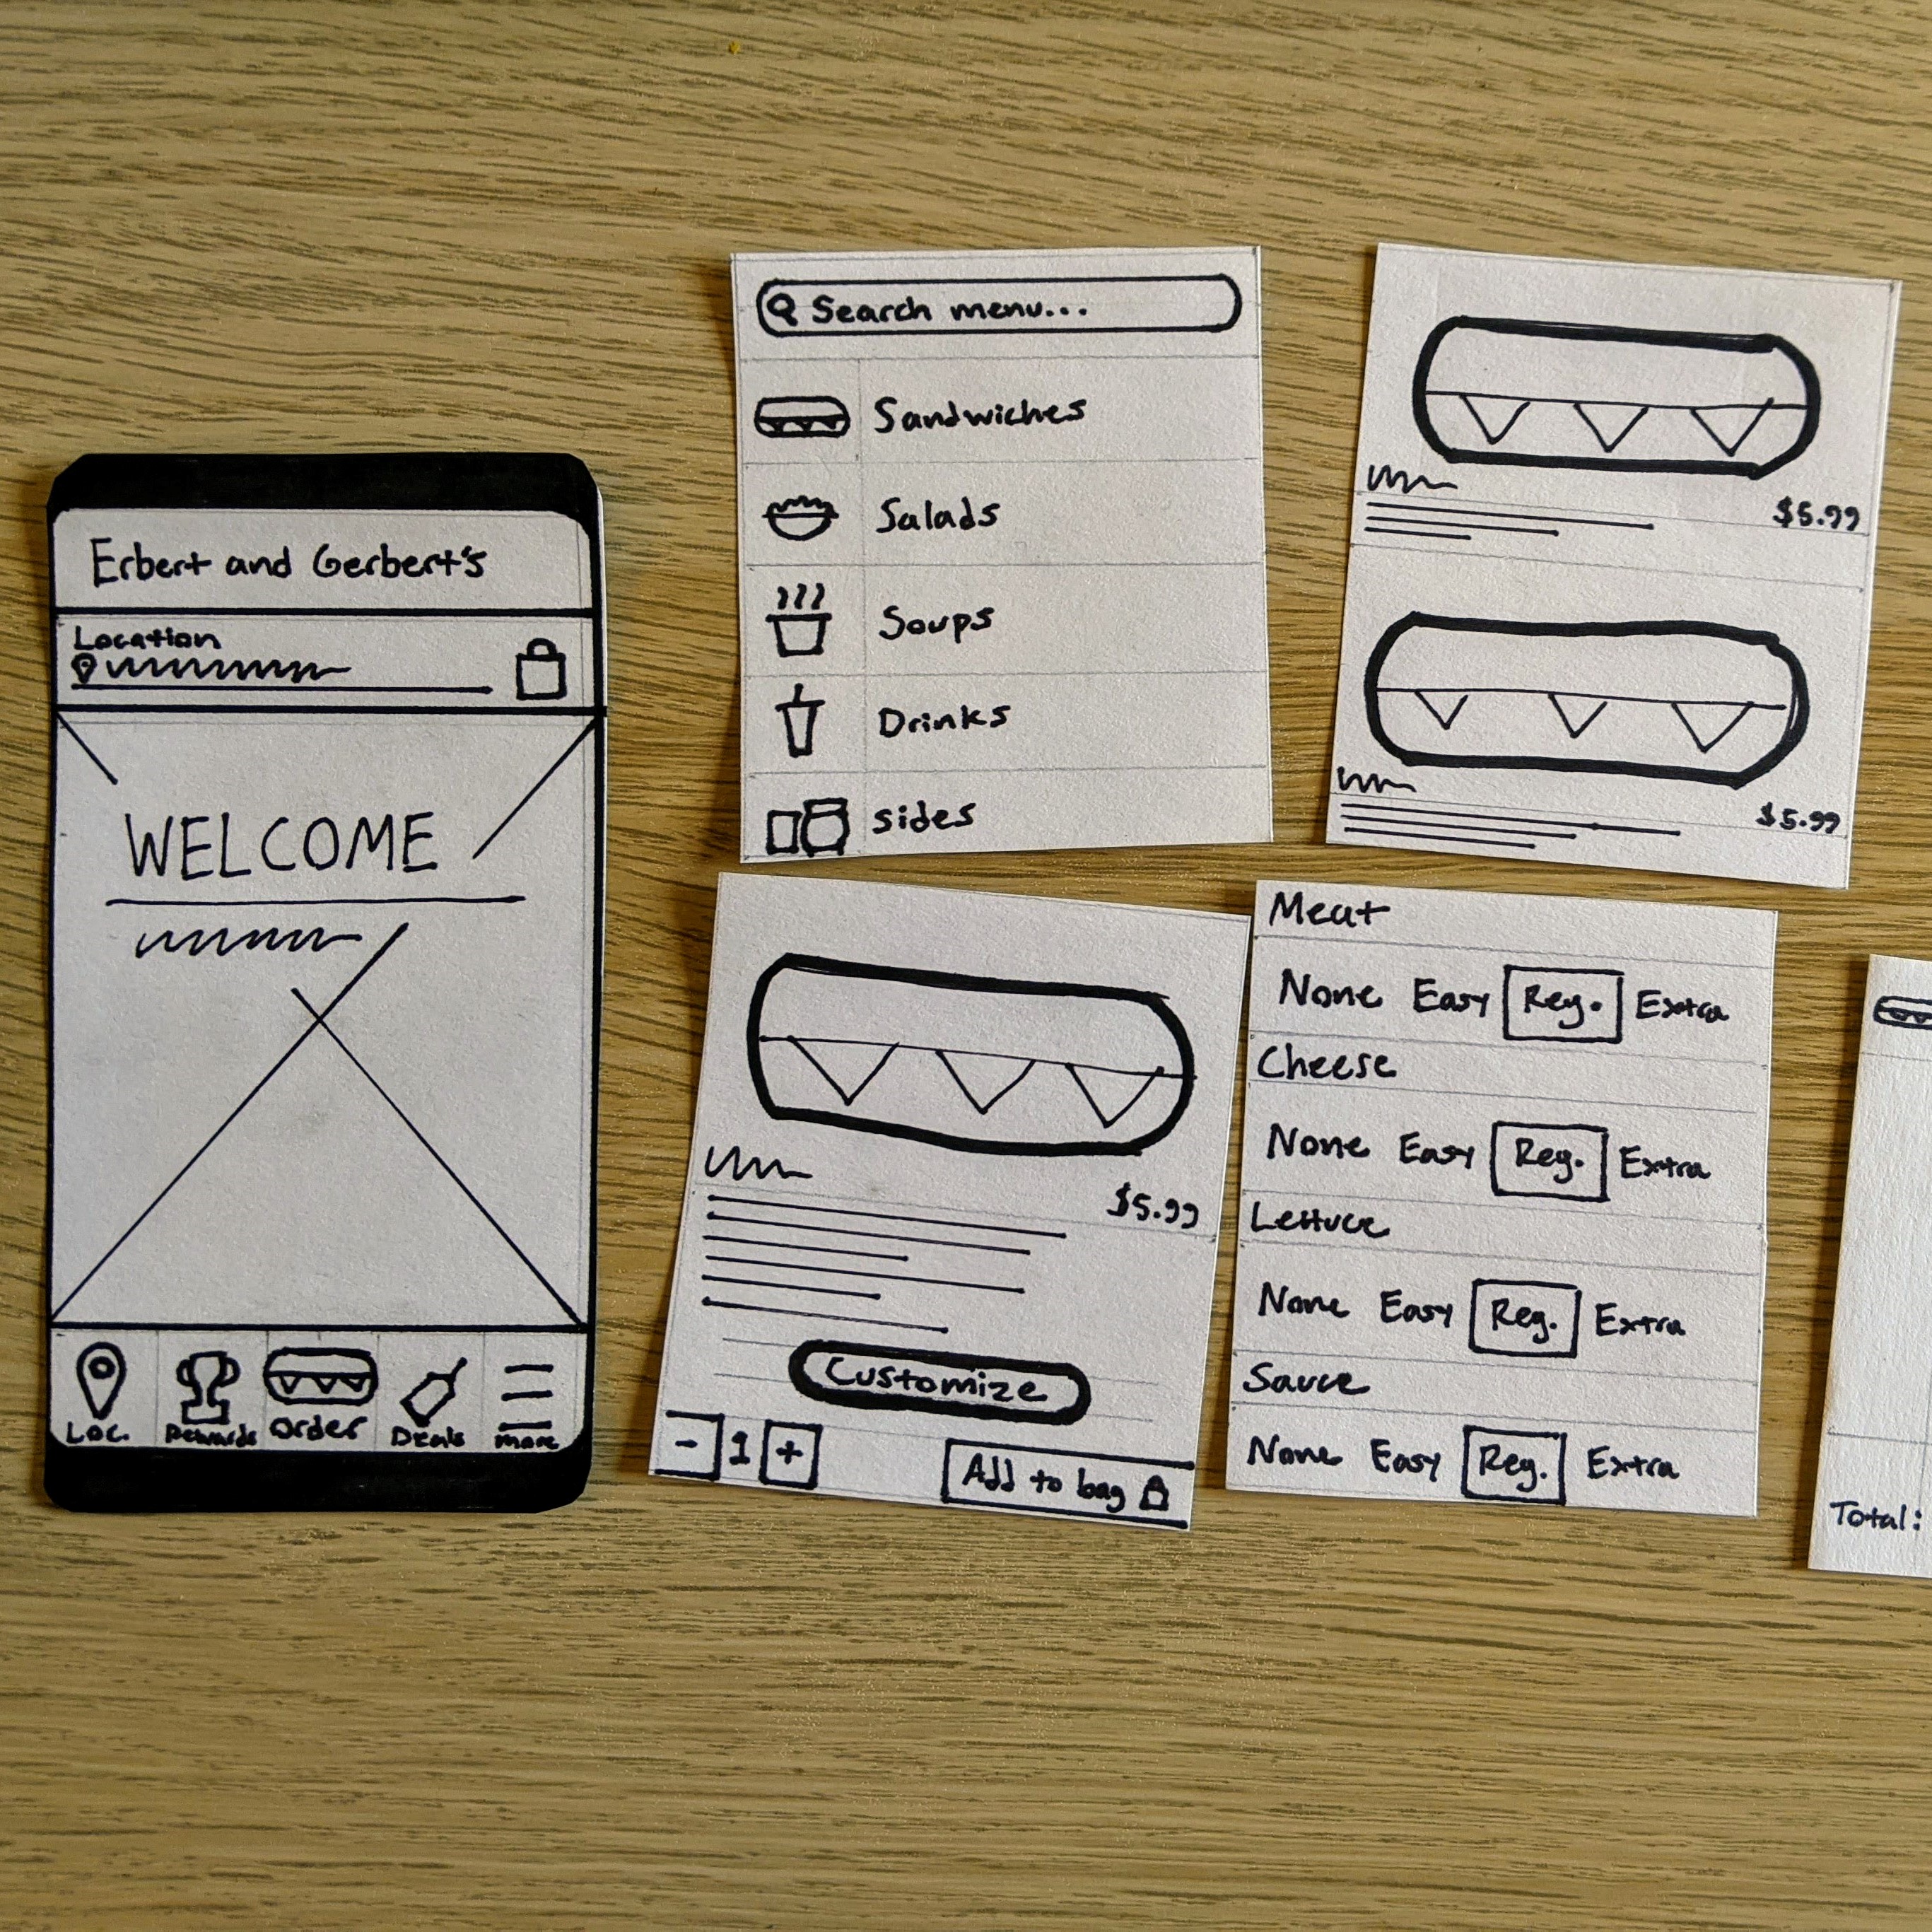 Erbert and Gerbert's
Location
WELCOME
Loc.
Rewards
Order
Deals
more
Search menu...
Sandwiches
Salads
Soups
Drinks
sides
$5.99
$5.99
$5.99
Customize
- 1 +
Add to bag
Meat
None Easy Reg. Extra
Cheese
None Easy Reg. Extra
Lettuce
None Easy Reg. Extra
Sauce
None Easy Reg. Extra
Total: